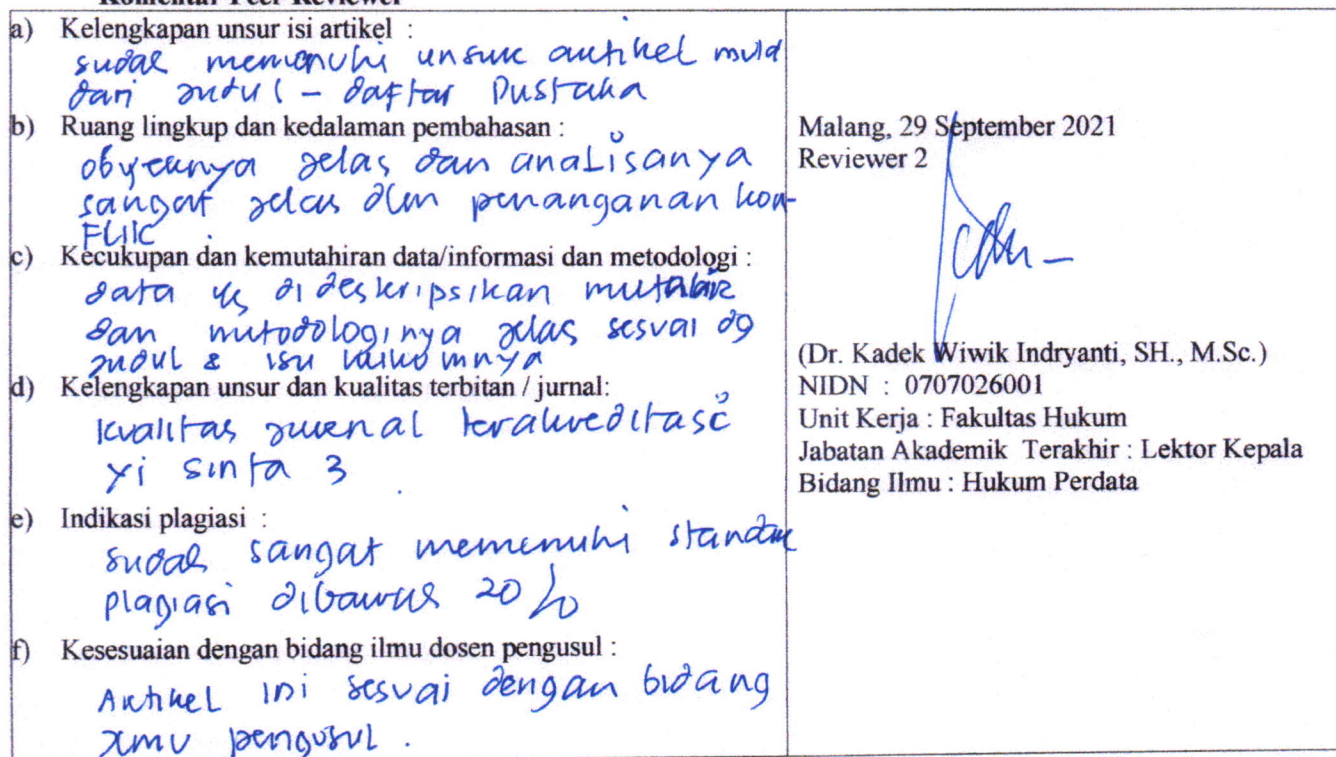 Komentar Peer Reviewer
a) Kelengkapan unsur isi artikel :
sudah memenuhi unsur artikel mulai
dari judul - daftar Pustaka
b) Ruang lingkup dan kedalaman pembahasan :
obyeknya jelas dan analisanya
sangat jelas dlm penanganan kon-
flik.
c) Kecukupan dan kemutahiran data/informasi dan metodologi :
data yg dideskripsikan mutakhir
dan metodologinya jelas sesuai dg
judul & isu hukumnya
d) Kelengkapan unsur dan kualitas terbitan / jurnal:
kualitas jurnal terakreditasi
yi sinta 3.
e) Indikasi plagiasi :
sudah sangat memenuhi standar
plagiasi dibawah 20 %
f) Kesesuaian dengan bidang ilmu dosen pengusul :
Artikel ini sesuai dengan bidang
ilmu pengusul.
Malang, 29 September 2021
Reviewer 2
(Dr. Kadek Wiwik Indryanti, SH., M.Sc.)
NIDN : 0707026001
Unit Kerja : Fakultas Hukum
Jabatan Akademik Terakhir : Lektor Kepala
Bidang Ilmu : Hukum Perdata